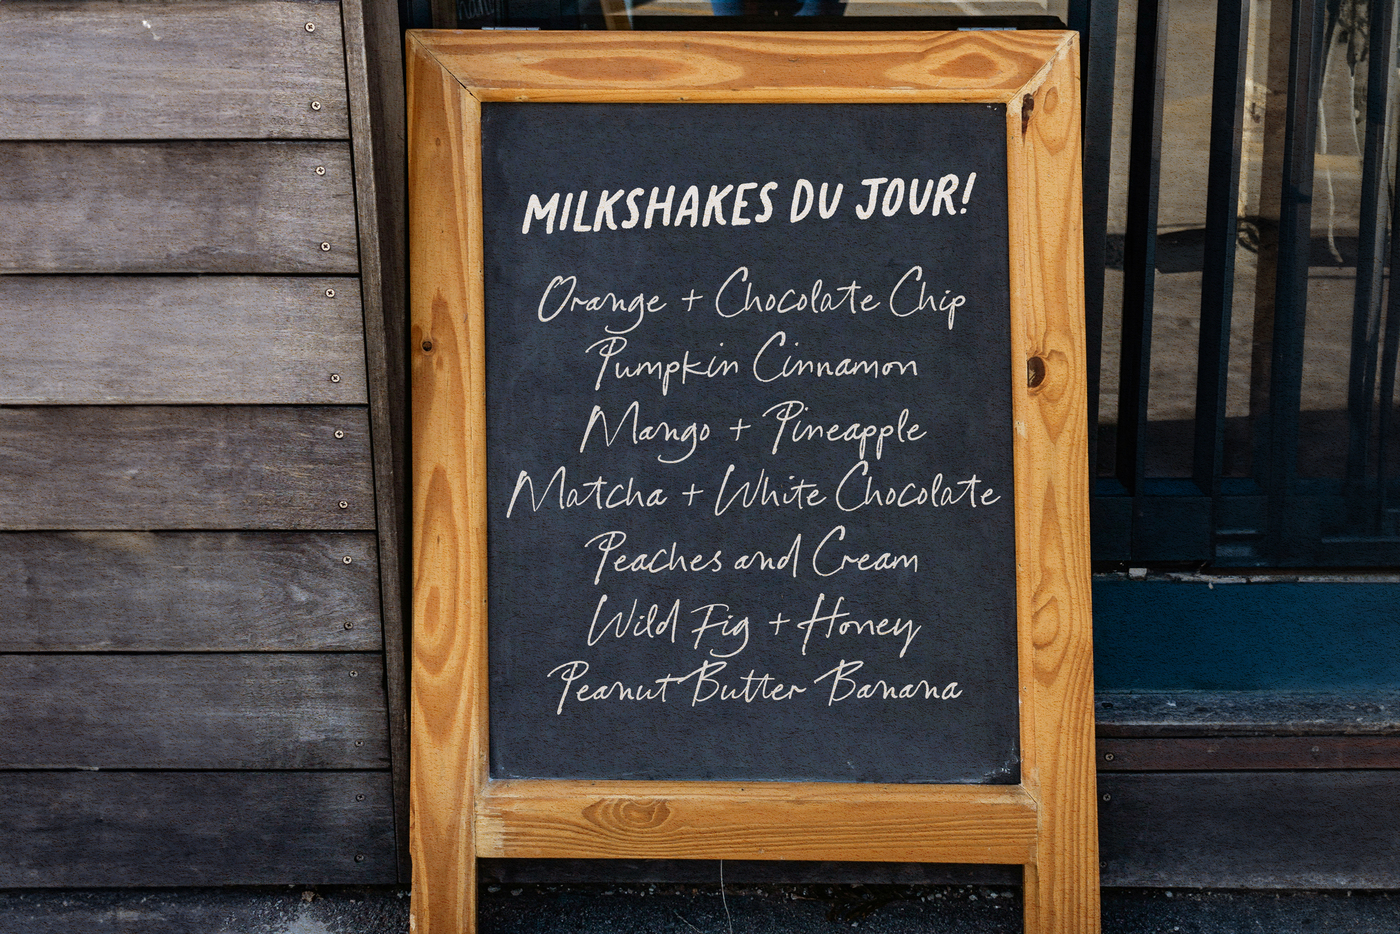 MILKSHAKES DU JOUR!
Orange + Chocolate Chip
Pumpkin Cinnamon
Mango + Pineapple
Matcha + White Chocolate
Peaches and Cream
Wild Fig + Honey
Peanut Butter Banana